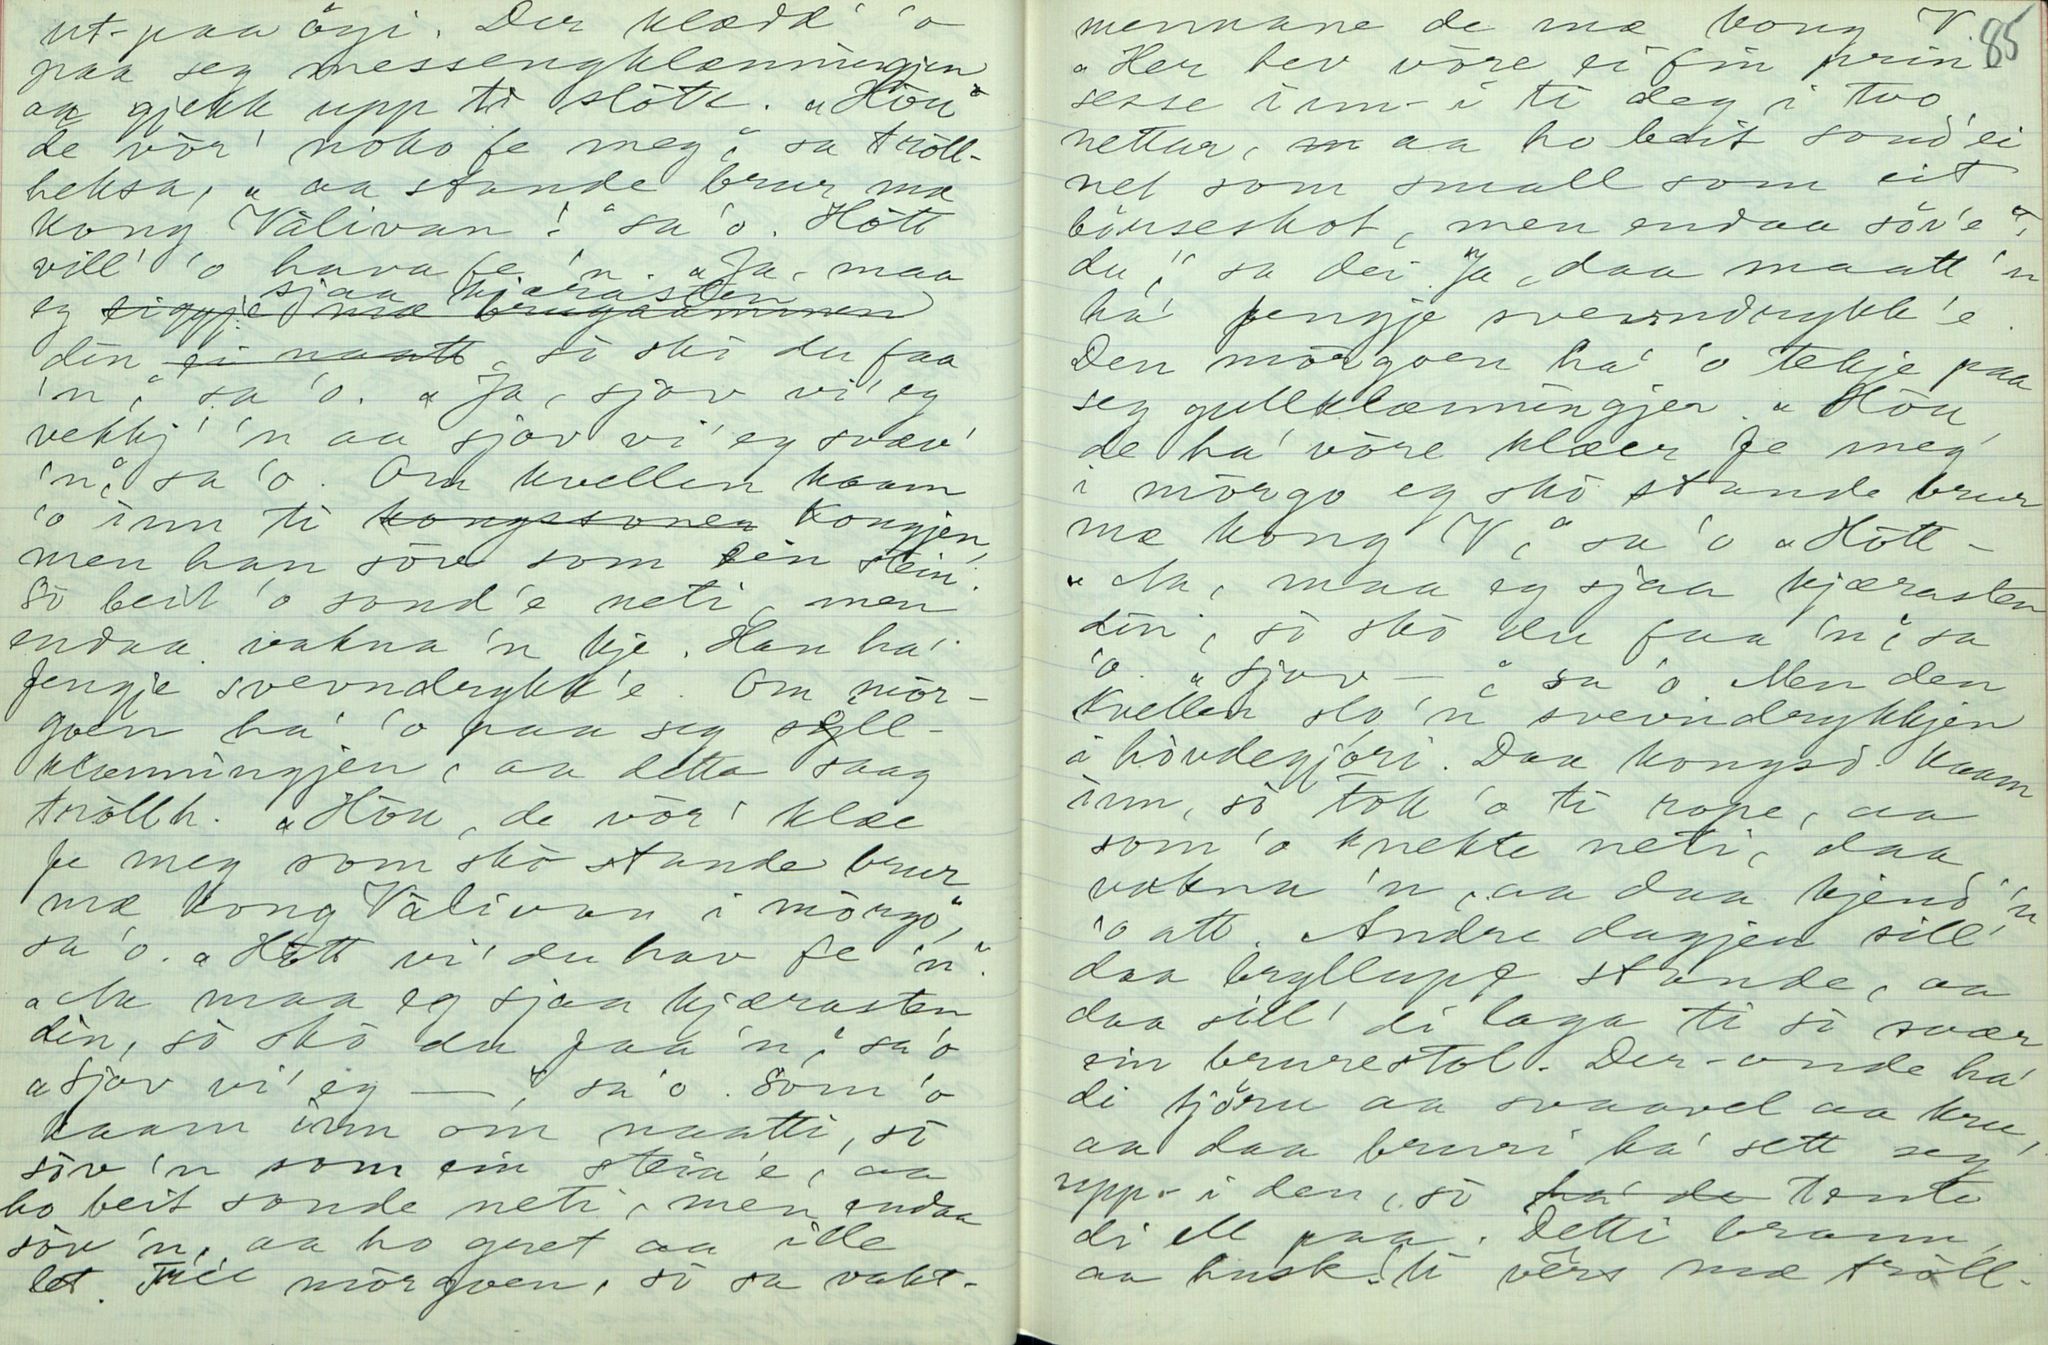 ut-paa öyi. Der klædd' 'o
paa seg messengklænningjen
aa gjekk upp ti slöte. "Höu
de vör' noko fe meg", sa tröll-
heksa, "aa stande brur mæ
kong Välivan!" sa 'o. Hött
vill' 'o hava fe 'n. "Ja, maa
sjaa kjærasten
eg siggje mæ brugaammen
din ei naatt, sö skö du faa
'n", sa 'o. "Ja, sjov vi' eg
vekkj' 'n aa sjov vi' eg svæv'
'n", sa 'o. Om kvellen kaam
'o inn ti kongssonen kongjen,
men han söv som ein stein.
Sö beit 'o sond'e neti, men
endaa vakna 'n kje. Han ha'
fengje svevndrykk'e. Om mör-
goen ha' 'o paa seg syll-
klænningjen, aa detta saag
tröllh. "Höu, de vör' klæe
fe meg som skö stande brur
mæ kong Välivan i mörgo",
sa 'o. "Hött vi' du hav fe 'n".
"Aa maa eg sjaa kjærasten
din, sö skö du faa 'n", sa 'o
"Sjov vi' eg — ", sa 'o. Som 'o
kaam inn om naatti, sö
söv 'n som ein stein'e, aa
ho beit sonde neti, men endaa
söv 'n, aa ho gret aa ille
let. Till mörgoen, sö sa vakt-
85
mennane de mæ kong V.
"Her hev vöre ei fin prin-
sesse inn-i ti deg i tvo
nettar, m aa ho beit sond' ei
net som small som eit
börseskot, men endaa söv'e
du", sa dei. "Ja, daa maatt 'n
ha' fengje svevndrykk'e.
Den mörgoen ha' 'o tekje paa
seg gullklænningjen. "Höu,
de ha' vöre klæer fe meg
i mörgo eg skö stande brur
mæ kong V", sa 'o "Hött –
"Aa, maa eg sjaa kjærasten
din, sö skö du faa 'n", sa
'o. "Sjov — ", sa 'o. Men den
kvellen slo 'n svevndrykkjen
i hövdegjöri. Daa kongsd. kaam
inn, sö tok 'o ti rope, aa
som 'o knekte neti, daa
vakna 'n, aa daa kjend' 'n
'o att. Andre dagjen sill'
daa bryllupe stande, aa
daa sill' di laga ti sö svær
ein brurestol. Der-onde ha'
di tjöru aa svaavel aa kru,
aa daa bruri ha' sett seg
upp-i den, sö ha' de tente
di ell paa. Detti brann,
aa husk. ti vërs mæ tröll-